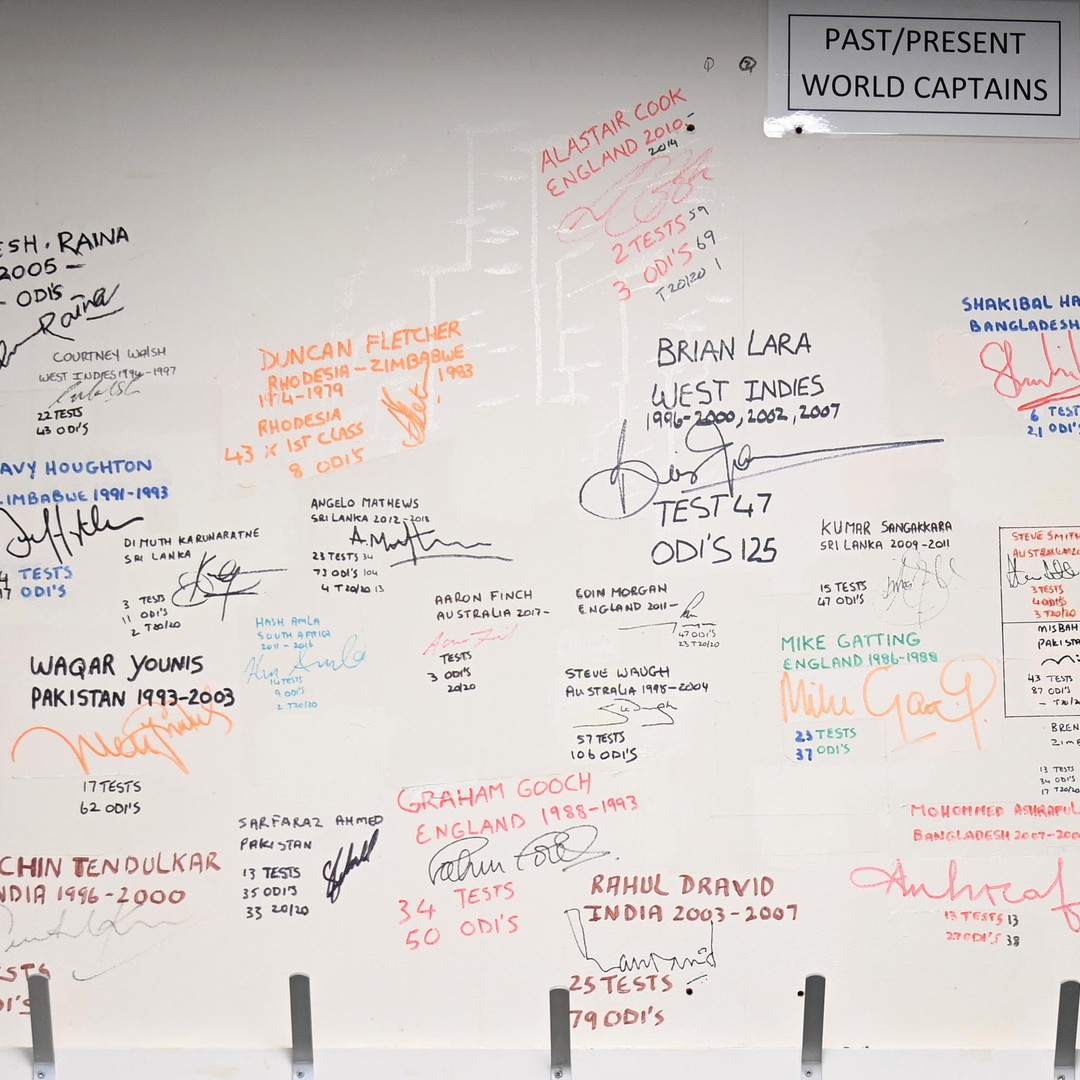 PAST/PRESENT
WORLD CAPTAINS
ALASTAIR COOK
ENGLAND 2010-
2014
2 TESTS 59
3 ODI'S 69
T20/20 1
ESH. RAINA
2005 -
- ODI'S
Raina
COURTNEY WALSH
WEST INDIES 1994-1997
22 TESTS
43 ODI'S
DUNCAN FLETCHER
RHODESIA - ZIMBABWE
1983
RHODESIA
43 X 1ST CLASS
8 ODI'S
BRIAN LARA
WEST INDIES
1996-2000, 2002, 2007
TEST 47
ODI'S 125
SHAKIBAL HA
BANGLADESH
6 TEST
21 ODI'S
AVY HOUGHTON
ZIMBABWE 1991-1993
4 TESTS
17 ODI'S
DIMUTH KARUNARATNE
SRI LANKA
3 TESTS
11 ODI'S
2 T20/20
ANGELO MATHEWS
SRI LANKA 2012-2018
A. Mathews
23 TESTS 34
73 ODI'S 104
4 T20/20 13
KUMAR SANGAKKARA
SRI LANKA 2009-2011
15 TESTS
47 ODI'S
STEVE SMITH
AUSTRALIA
3 TESTS
4 ODI'S
3 T20/20
MISBAH
PAKISTA
43 TESTS
87 ODI'S
- T20/2
BREN
ZIMB
13 TESTS
34 ODI'S
17 T20/20
AARON FINCH
AUSTRALIA 2017-
TESTS
3 ODI'S
20/20
EOIN MORGAN
ENGLAND 2011-
47 ODI'S
23 T20/20
HASH AMLA
SOUTH AFRICA
2011 - 2016
14 TESTS
9 ODI'S
2 T20/20
WAQAR YOUNIS
PAKISTAN 1993-2003
17 TESTS
62 ODI'S
STEVE WAUGH
AUSTRALIA 1995-2004
57 TESTS
106 ODI'S
MIKE GATTING
ENGLAND 1986-1988
Mike Gatting
23 TESTS
37 ODI'S
GRAHAM GOOCH
ENGLAND 1988-1993
34 TESTS
50 ODI'S
SARFARAZ AHMED
PAKISTAN
13 TESTS
35 ODI'S
33 20/20
CHIN TENDULKAR
NDIA 1996-2000
ESTS
DI'S
RAHUL DRAVID
INDIA 2003-2007
25 TESTS
79 ODI'S
MOHOMMED ASHRAFUL
BANGLADESH 2007-200
13 TESTS 13
27 ODI'S 38